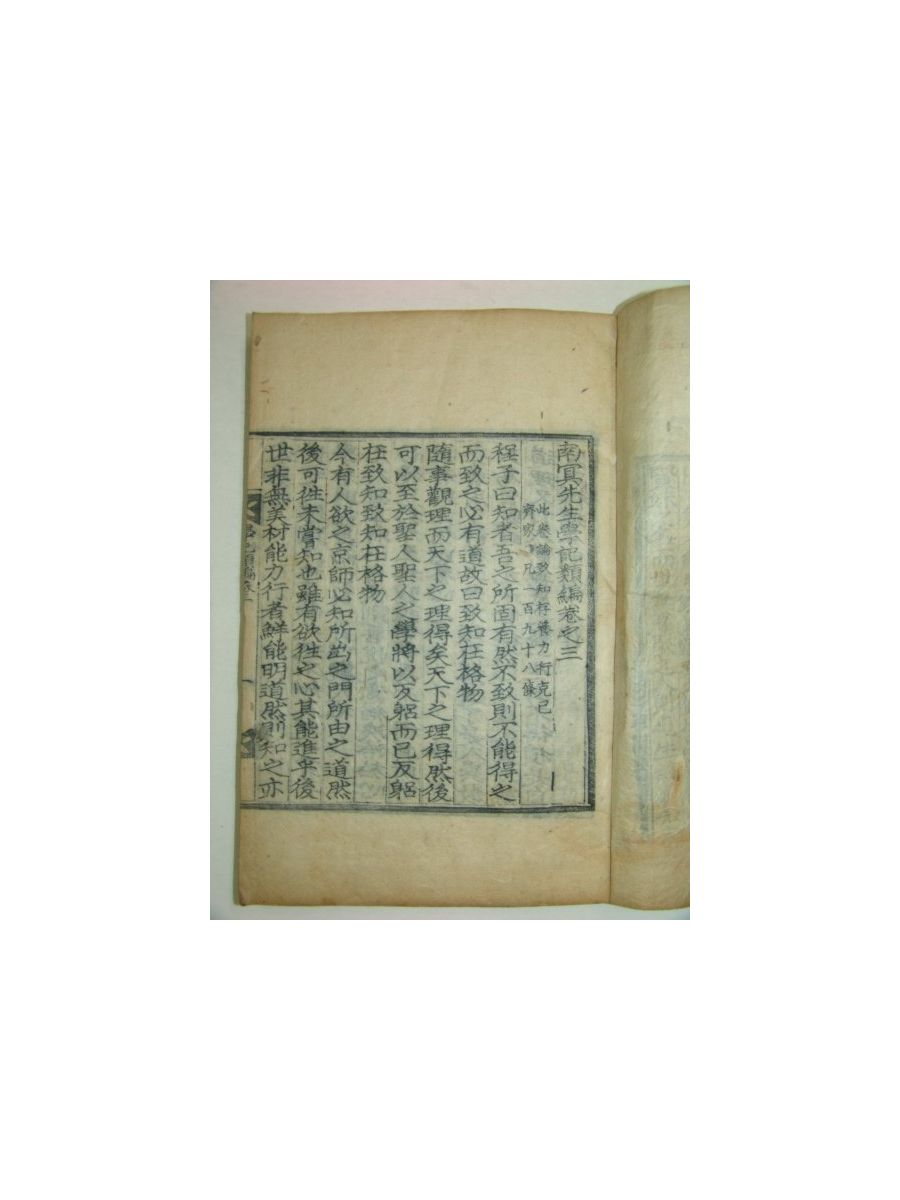 南冥先生學記類編卷之三
此卷論致知存養力行克己
齊家凡一百九十八條
程子曰知者吾之所固有然不致則不能得之
而致之必有道故曰致知在格物
隨事觀理而天下之理得矣天下之理得然後
可以至於聖人聖人之學將以反躬而已反躬
在致知致知在格物
今有人欲之京師必知所出之門所由之道然
後可徃未嘗知也雖有欲徃之心其能進乎後
世非無美材能力行者鮮能明道然則知之亦